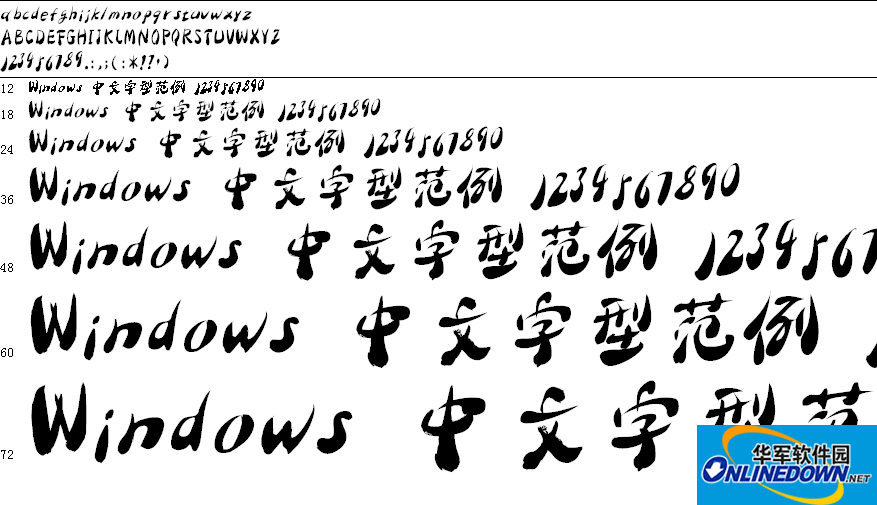 abcdefghijklmnopqrstuvwxyz
ABCDEFGHIJKLMNOPQRSTUVWXYZ
1234567890.:,;(:*!?·)
12 Windows 中文字型范例 1234567890
18 Windows 中文字型范例 1234567890
24 Windows 中文字型范例 1234567890
36 Windows 中文字型范例 1234567890
48 Windows 中文字型范例 1234567
60 Windows 中文字型范例
72 Windows 中文字型范
华军软件园
ONLINEDOWN.NET